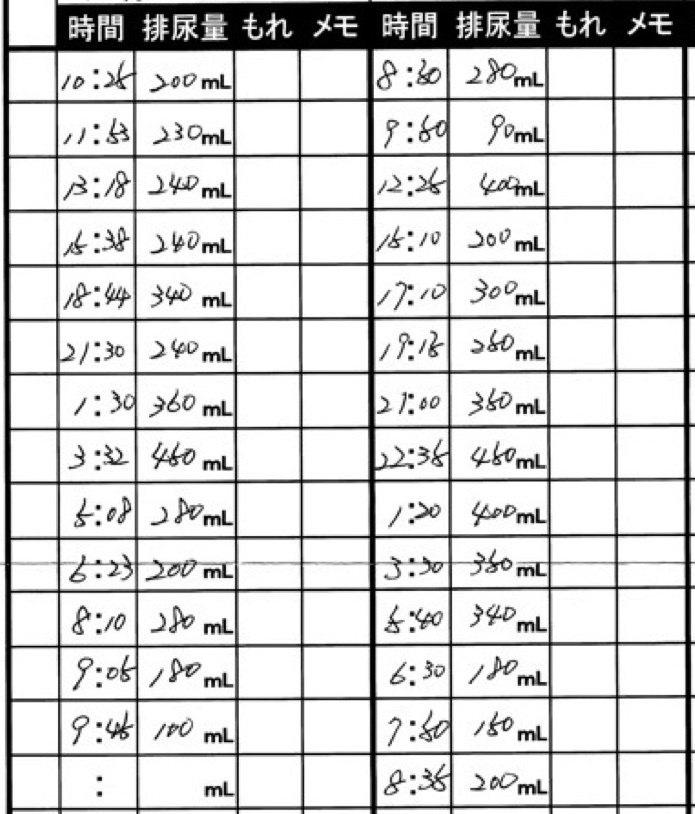 時間 排尿量 もれ メモ 時間 排尿量 もれ メモ
10:25 200mL 8:30 280mL
11:53 230mL 9:50 90mL
13:18 240mL 12:25 400mL
15:38 240mL 15:10 200mL
18:44 340mL 17:10 300mL
21:30 240mL 19:15 250mL
1:30 360mL 21:00 350mL
3:32 450mL 22:35 450mL
5:08 280mL 1:20 400mL
6:23 200mL 3:30 350mL
8:10 280mL 5:40 340mL
9:05 180mL 6:30 180mL
9:45 100mL 7:50 150mL
: mL 8:35 200mL